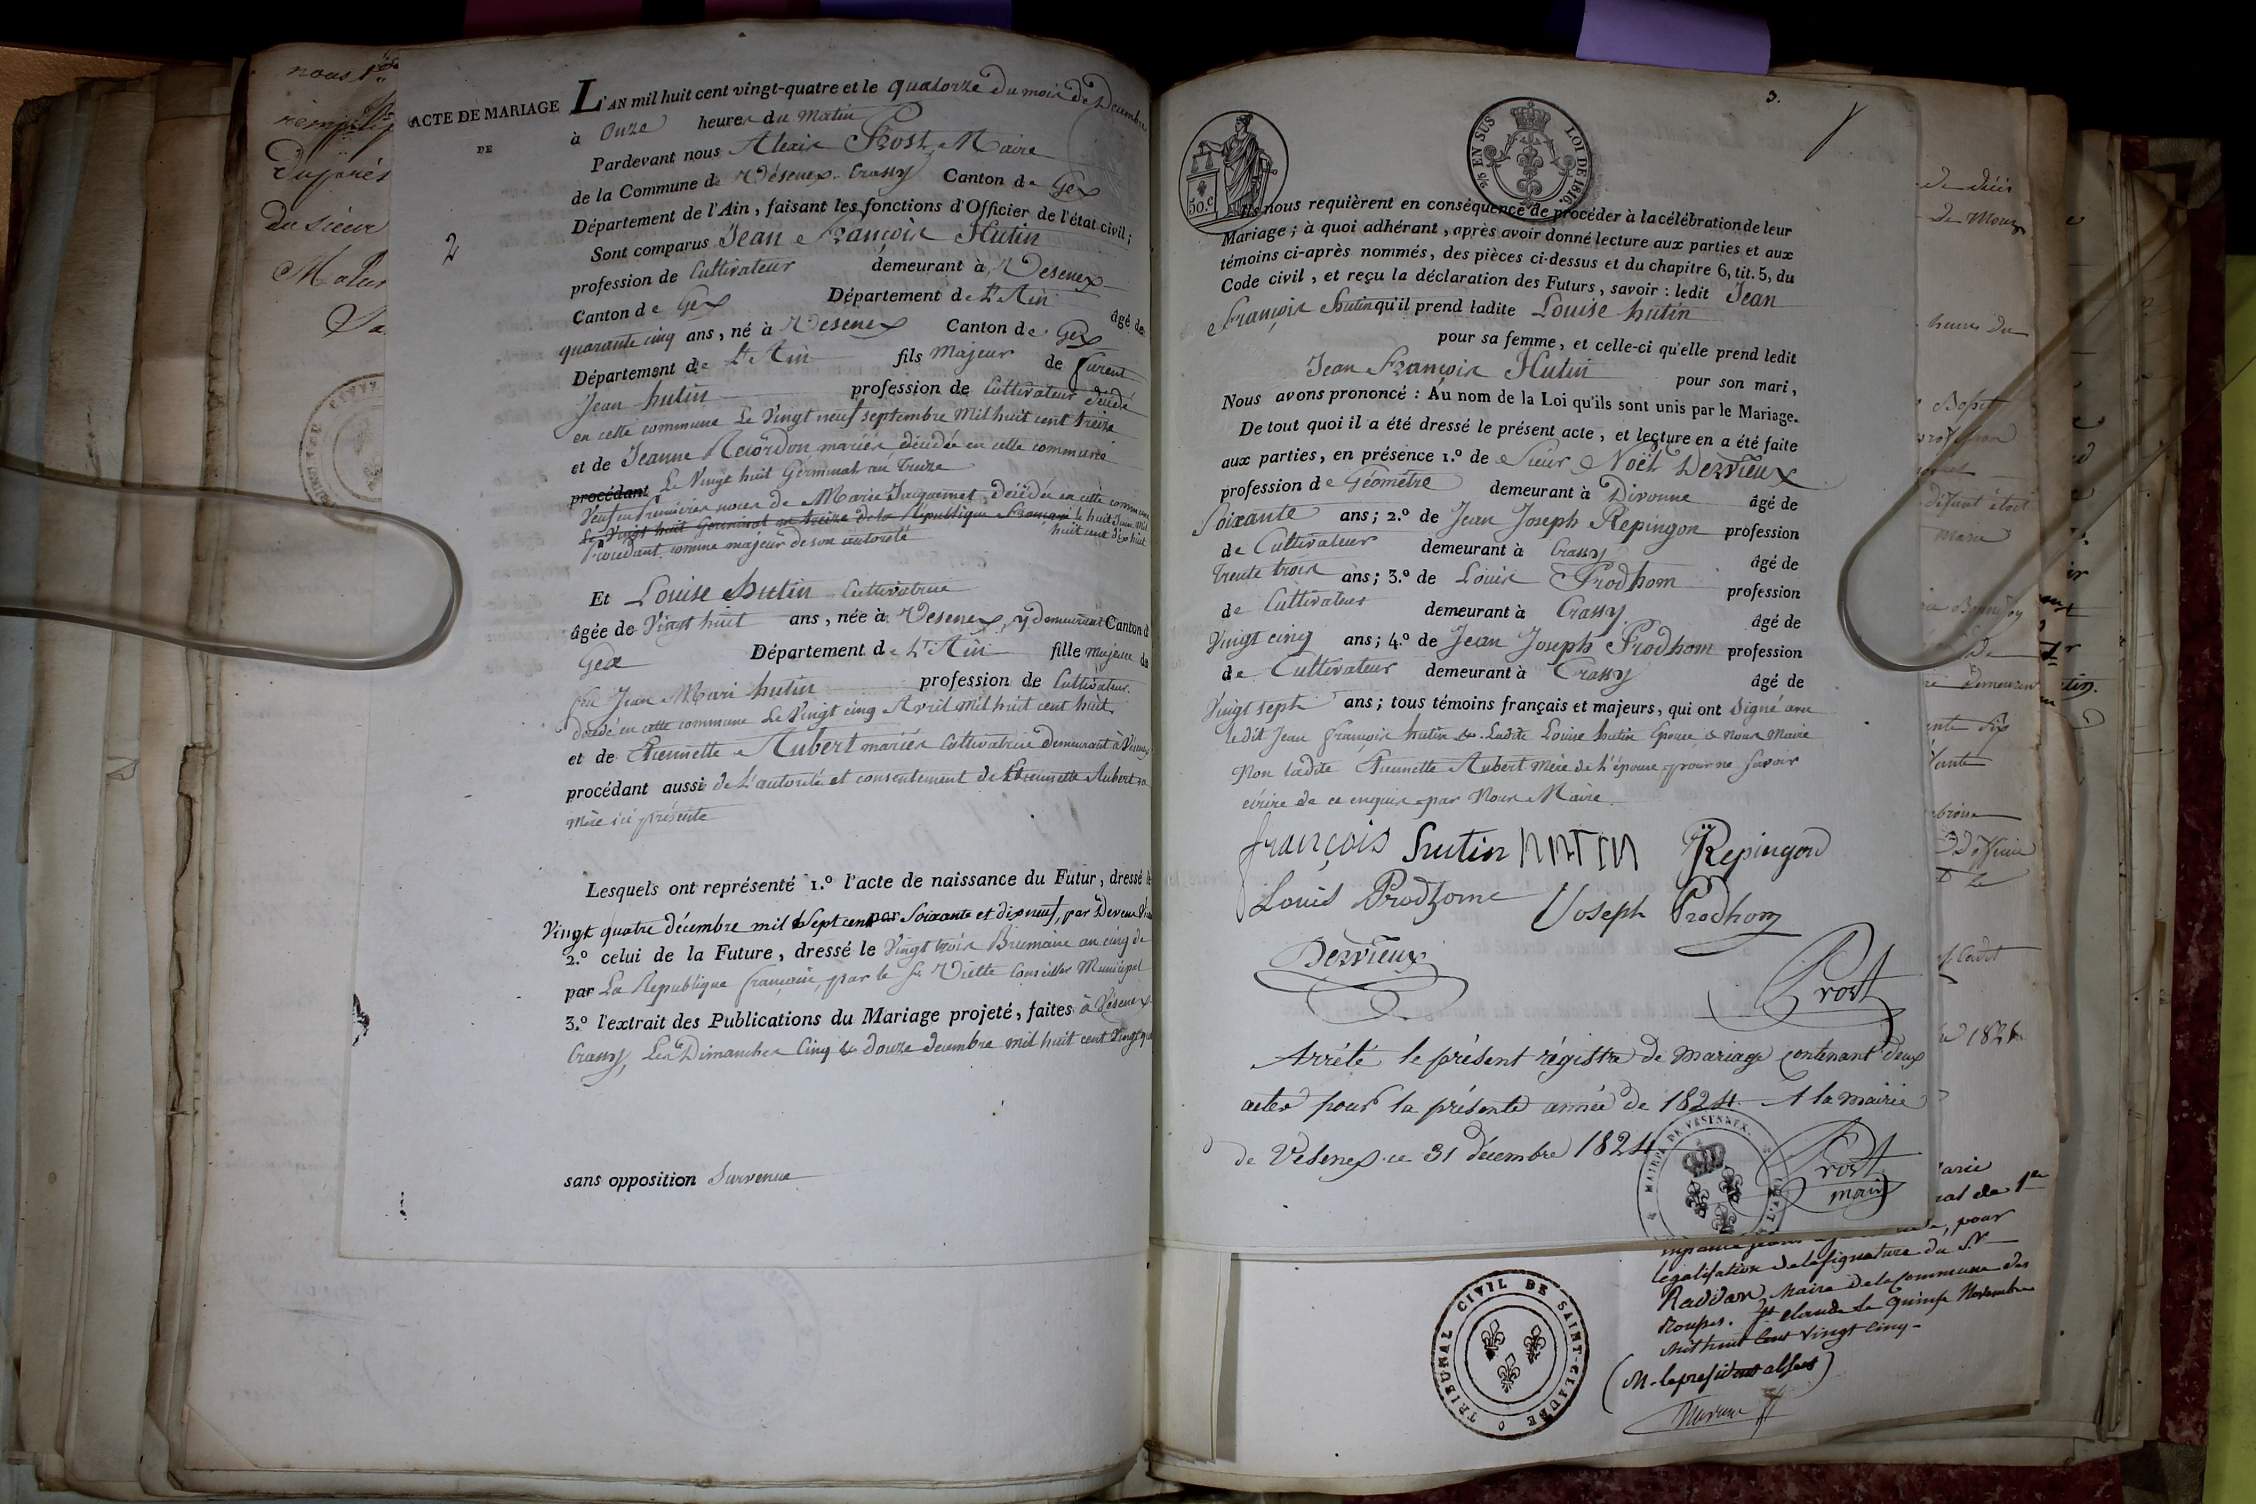 ACTE DE MARIAGE
DE
2
L'AN mil huit cent vingt-quatre et le quatorze du mois de Decembre
à Onze heures du matin
Pardevant nous Alexis Prost, Maire
de la Commune de Vésenex-Crassy Canton de Gex
Département de l'Ain, faisant les fonctions d'Officier de l'état civil;
Sont comparus Jean François Hutin
profession de Cultivateur demeurant à Vesenex
Canton de Gex Département de L'Ain âgé de
quarante cinq ans, né à Vesenex Canton de Gex
Département de L'Ain fils Majeur de furent
Jean hutin profession de Cultivateur décédé
en cette commune Le Vingt neuf septembre Mil huit cent treize
et de Jeanne Recordon mariés décédée en cette commune
procédant Le Vingt huit Germinal an Treize
Veuf en premières noces de Marie Jacquemet, décédée en cette commune
Le Vingt huit Germinal an treize de la République le huit Juin Mil
huit cent dix huit
Procédant comme majeur de son autorité
Et Louise hutin Cultivatrice
âgée de Vingt huit ans, née à Vesenex, y demeurant Canton de
Gex Département de L'Ain fille majeure de
feu Jean Mari hutin profession de Cultivateur
décédé en cette commune Le Vingt cinq Avril mil huit cent huit
et de Etiennette Aubert mariés Cultivatrice demeurant à Vésenex
procédant aussi de L'autorité et consentement de Etiennette Aubert sa
Mère ici présente
Lesquels ont représenté 1.º l'acte de naissance du Futur, dressé le
Vingt quatre décembre mil Sept cent par Soixante et dix neuf, par Deveno
2.º celui de la Future, dressé le Vingt trois Brumaire an cinq de
par La Republique françaice, par le Sr Viette Conseiller Municipal
3.º l'extrait des Publications du Mariage projeté, faites à Vésenex
Crassy, Les Dimanches Cinq & douze decembre mil huit cent Vingt qu
sans opposition Survenue
3.
50.c
EN SUS LOI DE 1816.
Ils nous requièrent en conséquence de procéder à la célébration de leur
Mariage; à quoi adhérant, après avoir donné lecture aux parties et aux
témoins ci-après nommés, des pièces ci-dessus et du chapitre 6, tit. 5, du
Code civil, et reçu la déclaration des Futurs, savoir: ledit Jean
François Hutin qu'il prend ladite Louise hutin
pour sa femme, et celle-ci qu'elle prend ledit
Jean François Hutin pour son mari,
Nous avons prononcé: Au nom de la Loi qu'ils sont unis par le Mariage.
De tout quoi il a été dressé le présent acte, et lecture en a été faite
aux parties, en présence 1.º de Sieur Noël Dervieux
profession de Géomètre demeurant à Divonne âgé de
Soixante ans; 2.º de Jean Joseph Repingon profession
de Cultivateur demeurant à Crassy âgé de
Trente trois ans; 3.º de Louis Prodhom profession
de Cultivateur demeurant à Crassy âgé de
Vingt cinq ans; 4.º de Jean Joseph Prodhom profession
de Cultivateur demeurant à Crassy âgé de
Vingt sept ans; tous témoins français et majeurs, qui ont Signé avec
ledit Jean François hutin & Ladite Louise hutin Epouse & nous Maire
Non ladite Etiennette Aubert Mère de L'épouse pour ne Savoir
écrire de ce enquise par Nous Maire
françois hutin HUTIN Repingon
Louis Prodhome Joseph Prodhom
Dervieux Prost
Arrété le présent régistre de mariage contenant deux
actes pour la présente année de 1824. A la mairie
de Vesenex ce 31 décembre 1824
MAIRIE DE VESENEX
Prost
maire
TRIBUNAL CIVIL DE SAINT-CLAUDE
légalisation de la signature du Sr
Maire de la Commune des
Rousses. St Claude le quinze Novembre
mil huit Cent vingt Cinq
(M. le president absent)